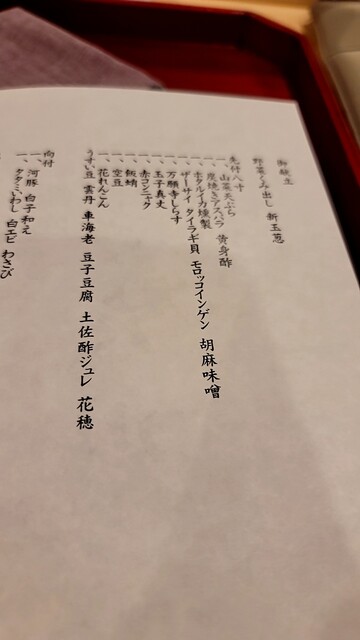 御献立
野菜くみ出し 新玉葱
先付八寸
一、山菜天ぷら
一、炭焼きアスパラ 黄身酢
一、ホタルイカ燻製
一、ザーサイ タイラギ貝 モロッコインゲン 胡麻味噌
一、万願寺しらす
一、玉子真丈
一、赤コンニャク
一、飯蛸
一、空豆
一、花れんこん
うすい豆 雲丹 車海老 豆子豆腐 土佐酢ジュレ 花穂
向付
一、河豚 白子和え
一、タタミいわし 白エビ わさび